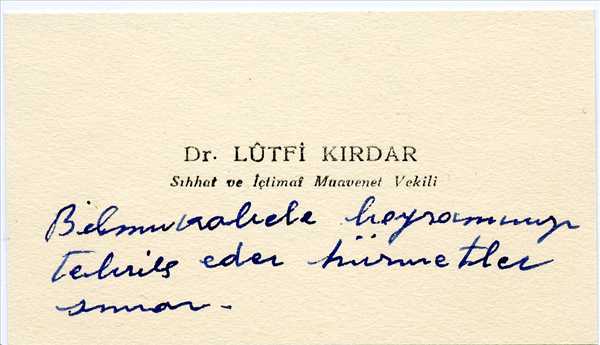 Dr. LÛTFİ KIRDAR
Sıhhat ve İçtimaî Muavenet Vekili
Bilmukabele bayramınızı
tebrik eder hürmetler
sunar.